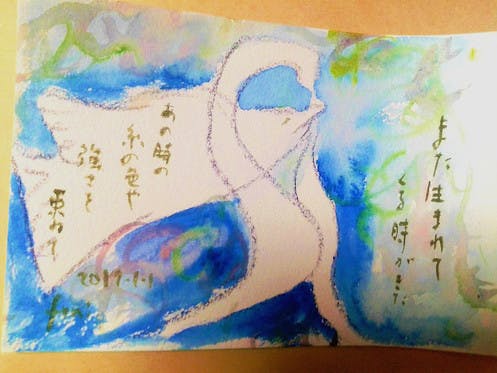 また生まれて
くる時がきた
あの時の
糸の色や
強さを
重ねて
2017.1.1